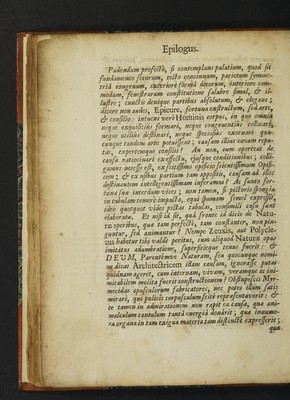 Epilogus.
Pudendum profectò, si contemplans palatium, quod sit
fundamento securum, tecto concinnum, parietum symme-
triâ congruum, exteriore formâ decorum, interiore com-
modum, fenestrarum constitutione salubre simul, & il-
lustre; cunctis denique partibus absolutum, & elegans;
dicere non audes, Epicure, fortuna exstructum, sed arte,
& consilio: intuens verò Hominis corpus, in quo omnia
neque exquisitius formari, neque congruentiùs collocari,
neque utiliùs destinari, neque speciosiùs exornari qua-
cunque tandem arte potuissent; causam illius casum repu-
tar, expertemque consilii? An non, cum oporteat de
causa ratiocinari ex effectu, ejusque conditionibus; colli-
gamus necesse est, ex scitissimo opificio scientissimum Opifi-
cem; & ex usibus partium tam appositis, causam ad illos
destinantem intelligentissimam inferamus? At
tunæ sunt interdum vires; non tamen, si pictoris spongia
in tabulam temerè impacta, equi spumam semel expressit,
ideo quotquot vides pictas tabulas, consimili casu sunt
elaboratæ. Et nisi id sit, quâ fronte id dicis de Natu-
ræ operibus, quæ tam perfectè, tam constanter, non pin-
guntur, sed animantur? Nempe Zeuxis, aut Polycle-
tus habetur tibi valdè peritus, cum aliquod Naturæ opus
imitatus adumbratione, superficieque tenus fuerit: &
DEUM, Parentemve Naturam, seu quocunque nomi-
ne dicas Architectricem illam causam, ignorasse putas
quidnam ageret, cum internam, vivam, veramque ac ini-
mitabilem molita fuerit constructionem? Obstupescis Myr-
mecidas opusculorum fabricatores, nec potes illum satis
mirari, qui pulicis corpusculum scitè repræsentaverit: &
te tamen in admirationem non rapit ea causa, quæ ani-
malculum tantulum tantâ energiâ donârit; quæ innume-
ra organa in tam exigua materia tam distinctè expresserit;
quæ